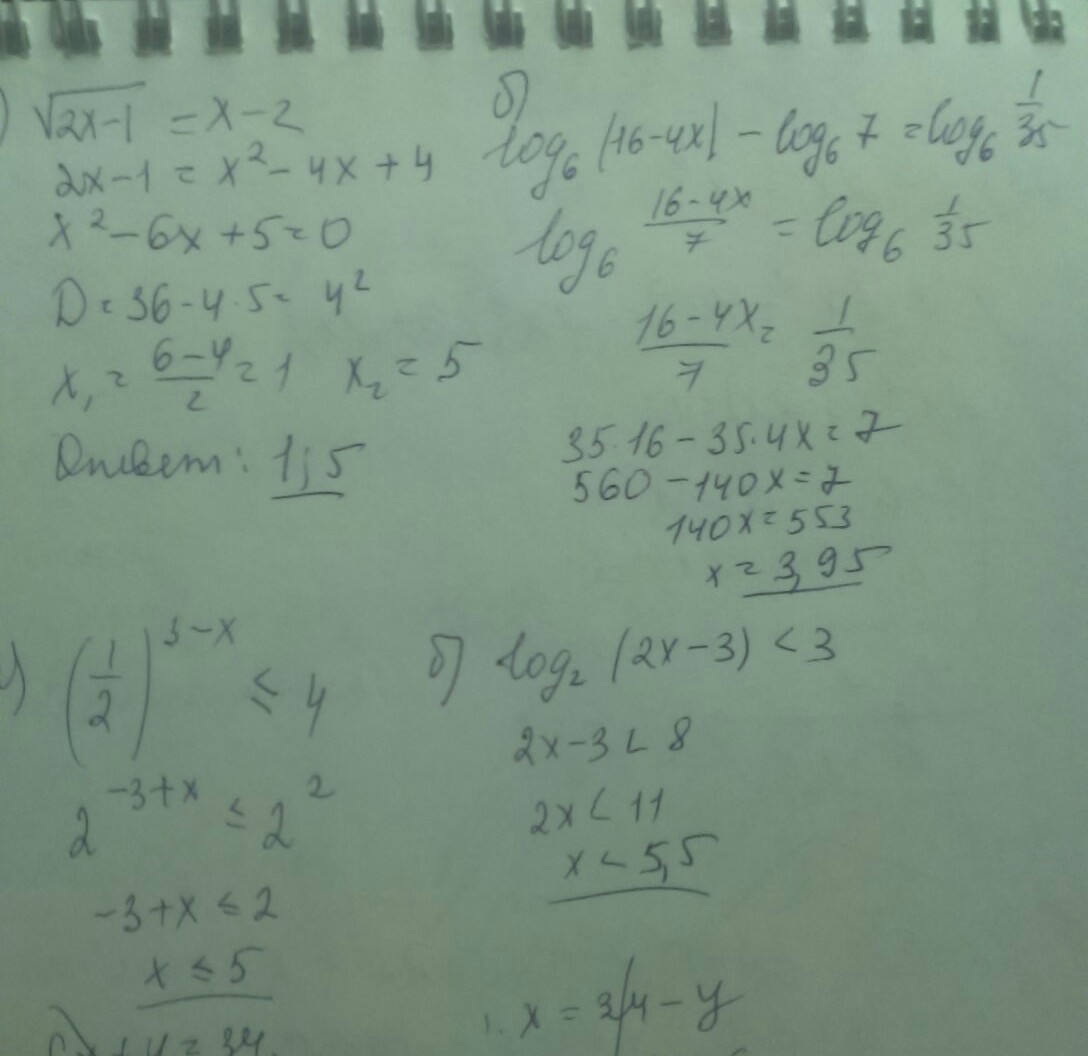 ) √2x-1 = x-2
2x-1 = x² - 4x + 4
x² - 6x + 5 = 0
D = 36 - 4·5 = 4²
x₁ = (6-4)/2 = 1   x₂ = 5
Ответ: 1; 5
б)
log₆ (16-4x) - log₆ 7 = log₆ 1/35
log₆ (16-4x)/7 = log₆ 1/35
(16-4x)/7 = 1/35
35·16 - 35·4x = 7
560 - 140x = 7
140x = 553
x = 3,95
) (1/2)^(3-x) ≤ 4
2^(-3+x) ≤ 2²
-3+x ≤ 2
x ≤ 5
б) log₂ (2x-3) < 3
2x-3 < 8
2x < 11
x < 5,5
x = 34 - y